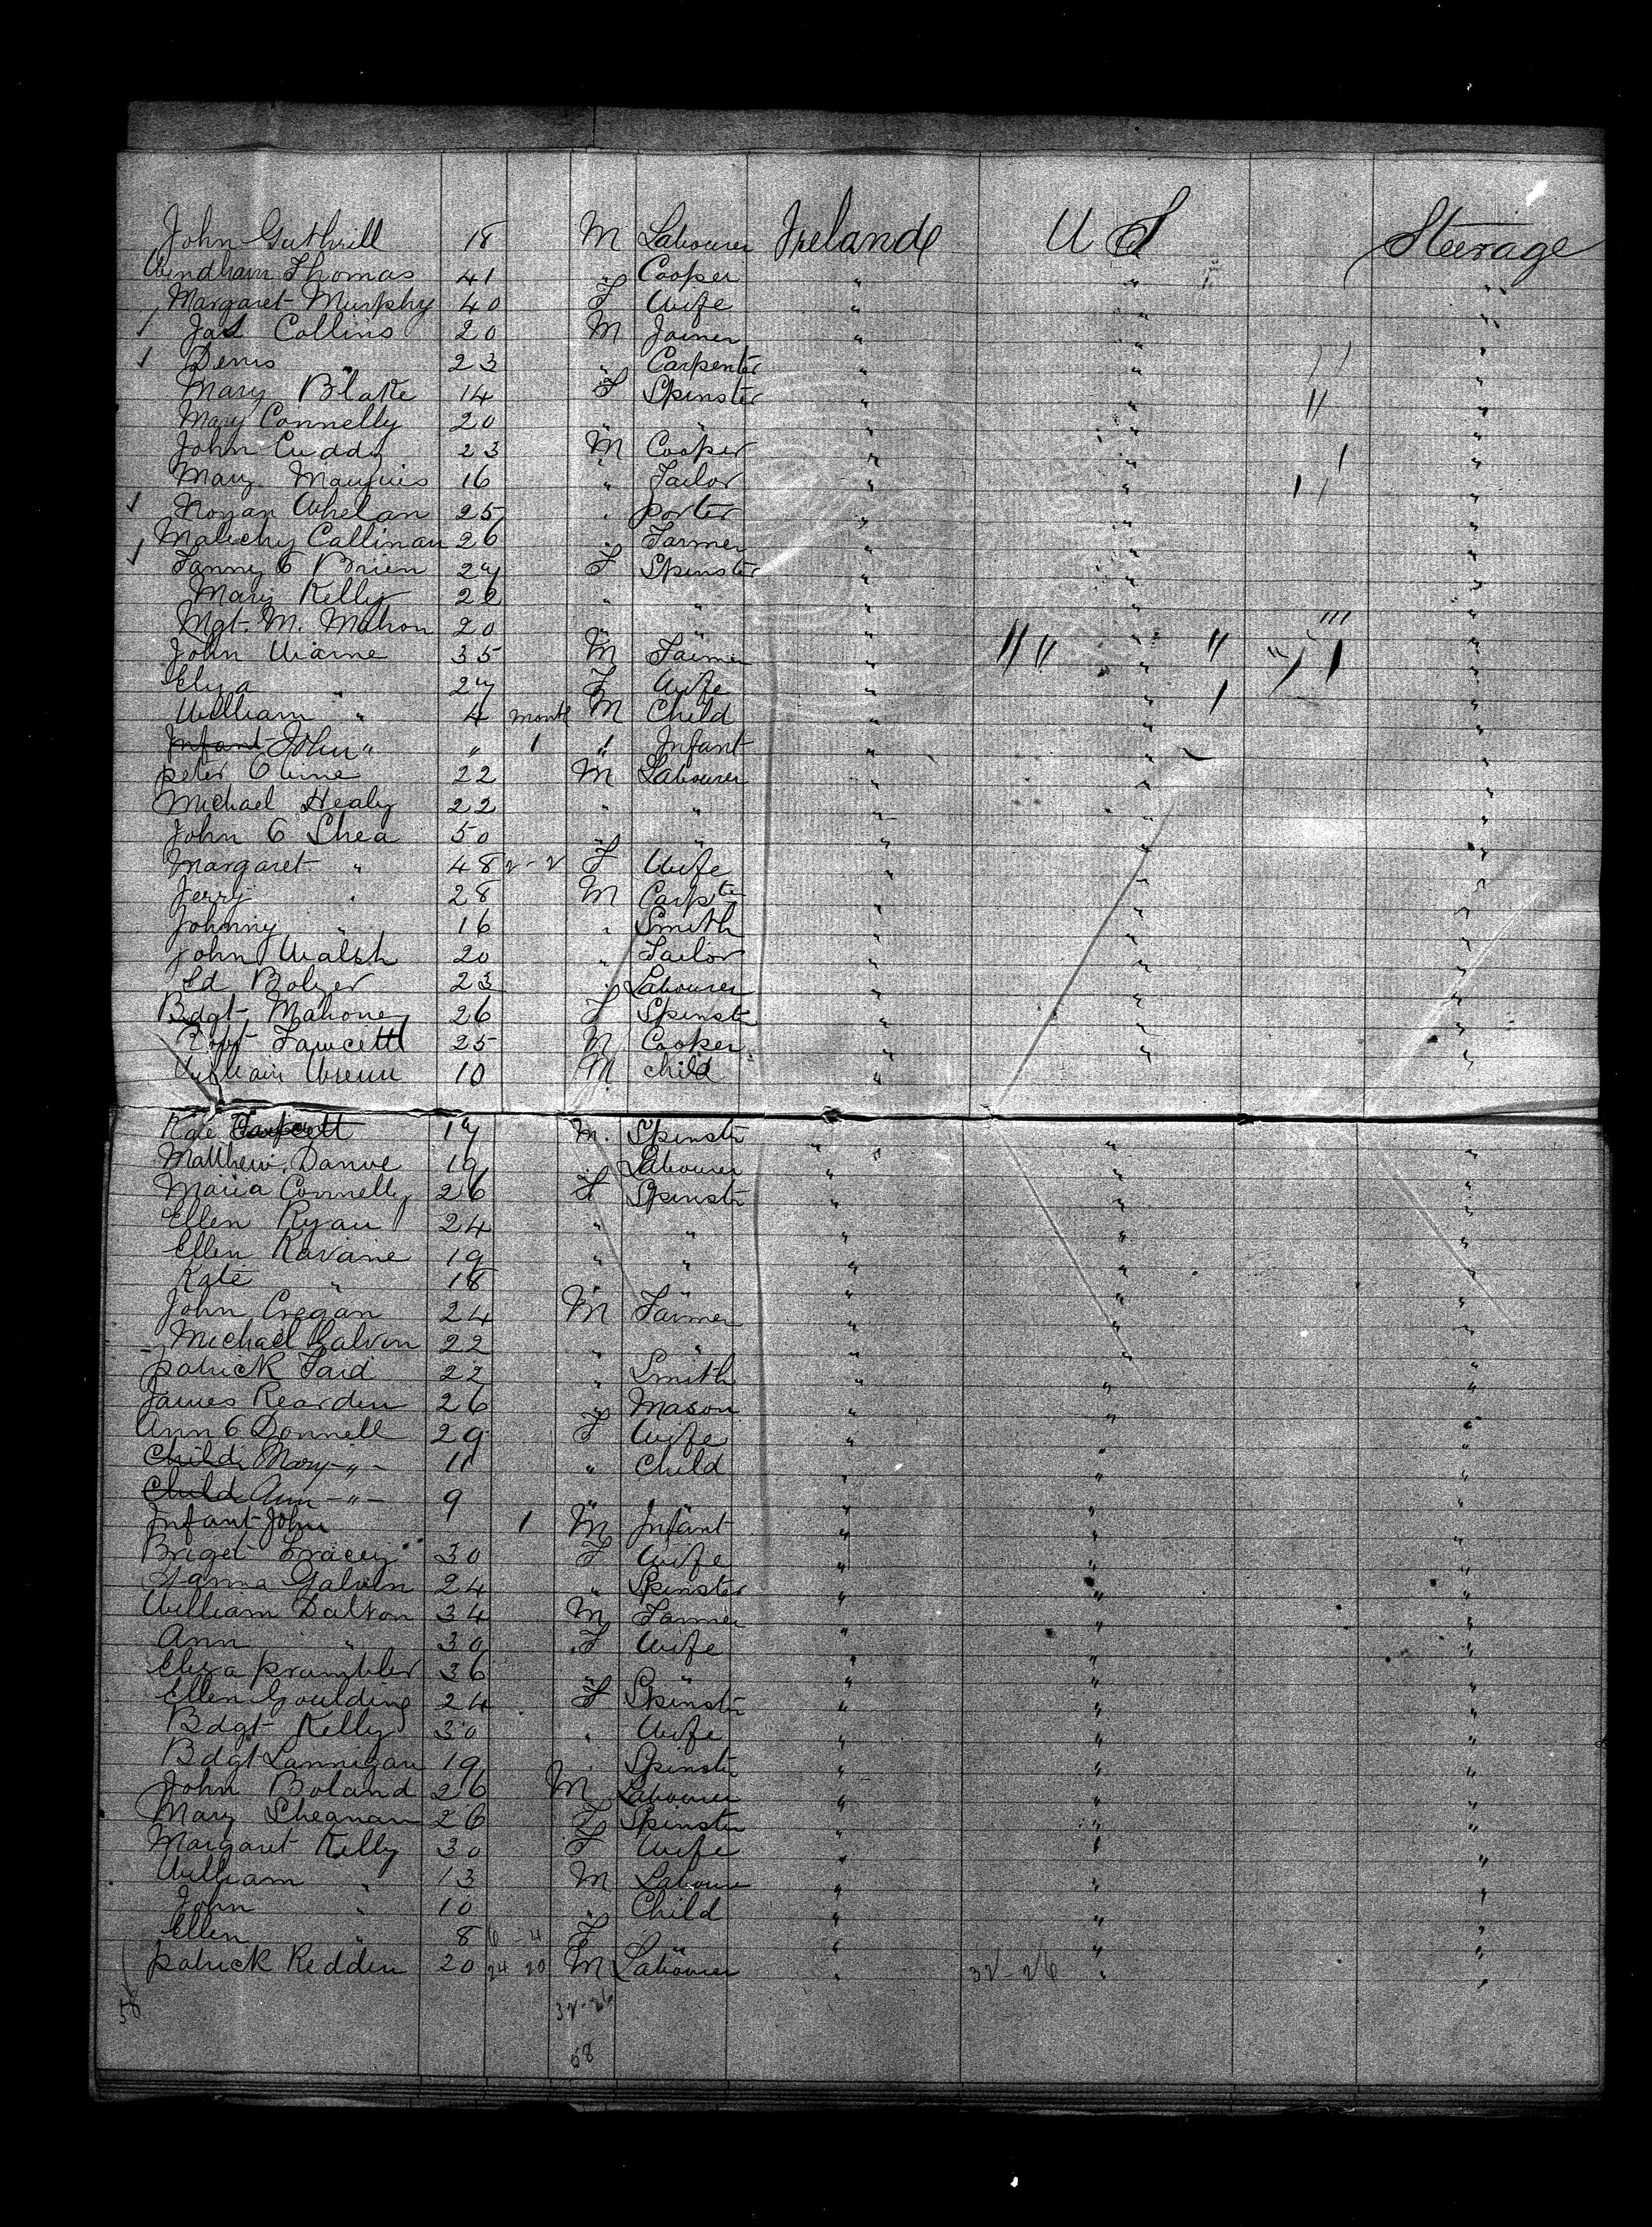 John Guthrill 18 M Labourer Ireland U S Steerage
Windham Thomas 41 " Cooper " " "
Margaret Murphy 40 F Wife " " "
Jas Collins 20 M Joiner " " "
Denis " 23 " Carpenter " " "
Mary Blake 14 F Spinster " " "
Mary Connelly 20 " " " " "
John Cuddy 23 M Cooper " " "
Mary 16 " Tailor " " "
Whelan 25 " porter " " "
Malachy Callinan 26 " Farmer " " "
Fanny O Brien 24 F Spinster " " "
Mary Kelly 26 " " " " "
Mgt. M. Mahon 20 " " " " "
John 35 M Farmer " " "
Eliza " 27 F Wife " " "
William " 4 month M Child " " "
Infant John " " 1 " Infant " " "
peter 22 M Labourer " " "
Michael Healy 22 " " " " "
John O Shea 50 " " " " "
Margaret " 48 2-2 F Wife " " "
Jerry " 28 M Carpter " " "
Johnny " 16 " Smith " " "
John Walsh 20 " Tailor " " "
Ed Bolger 23 " Labourer " " "
Bdgt Mahoney 26 F Spinstr " " "
Robt Fawcett 25 M Cooper " " "
William 10 M child "
Kate Fawcett 17 M. Spinstr " " "
Matthew 19 " Labourer " " "
Maria Connelly 26 F Spinstr " " "
Ellen Ryan 24 " " " " "
Ellen Kavane 19 " " " " "
Kate " 18 " " " " "
John Cregan 24 M Farmer " " "
Michael Galvin 22 " " " " "
patrick Taid 22 " Smith " " "
James Rearden 26 " Mason " " "
Ann O Donnell 29 F Wife " " "
Child Mary " 11 " Child " " "
Child Ann " 9 " " " " "
Infant John 1 M Infant " " "
Briget Tracey 30 F Wife " " "
Hanna Galvin 24 " Spinster " " "
William Dalton 34 M Farmer " " "
Ann " 30 F Wife " " "
Eliza prambler 36 " " " " "
Ellen Goulding 24 F Spinstr " " "
Bdgt Kelly 30 " Wife " " "
Bdgt Lannigan 19 " Spinstr " " "
John Boland 26 M Labourer " " "
Mary Sheanan 26 F Spinster " " "
Margaret Kelly 30 F Wife " " "
William " 13 M Laboure " " "
John " 10 " Child " " "
Ellen " 8 6-4 F " " " "
patrick Redden 20 24 20 M Labourer " 32-26 " "
58 32-26
58